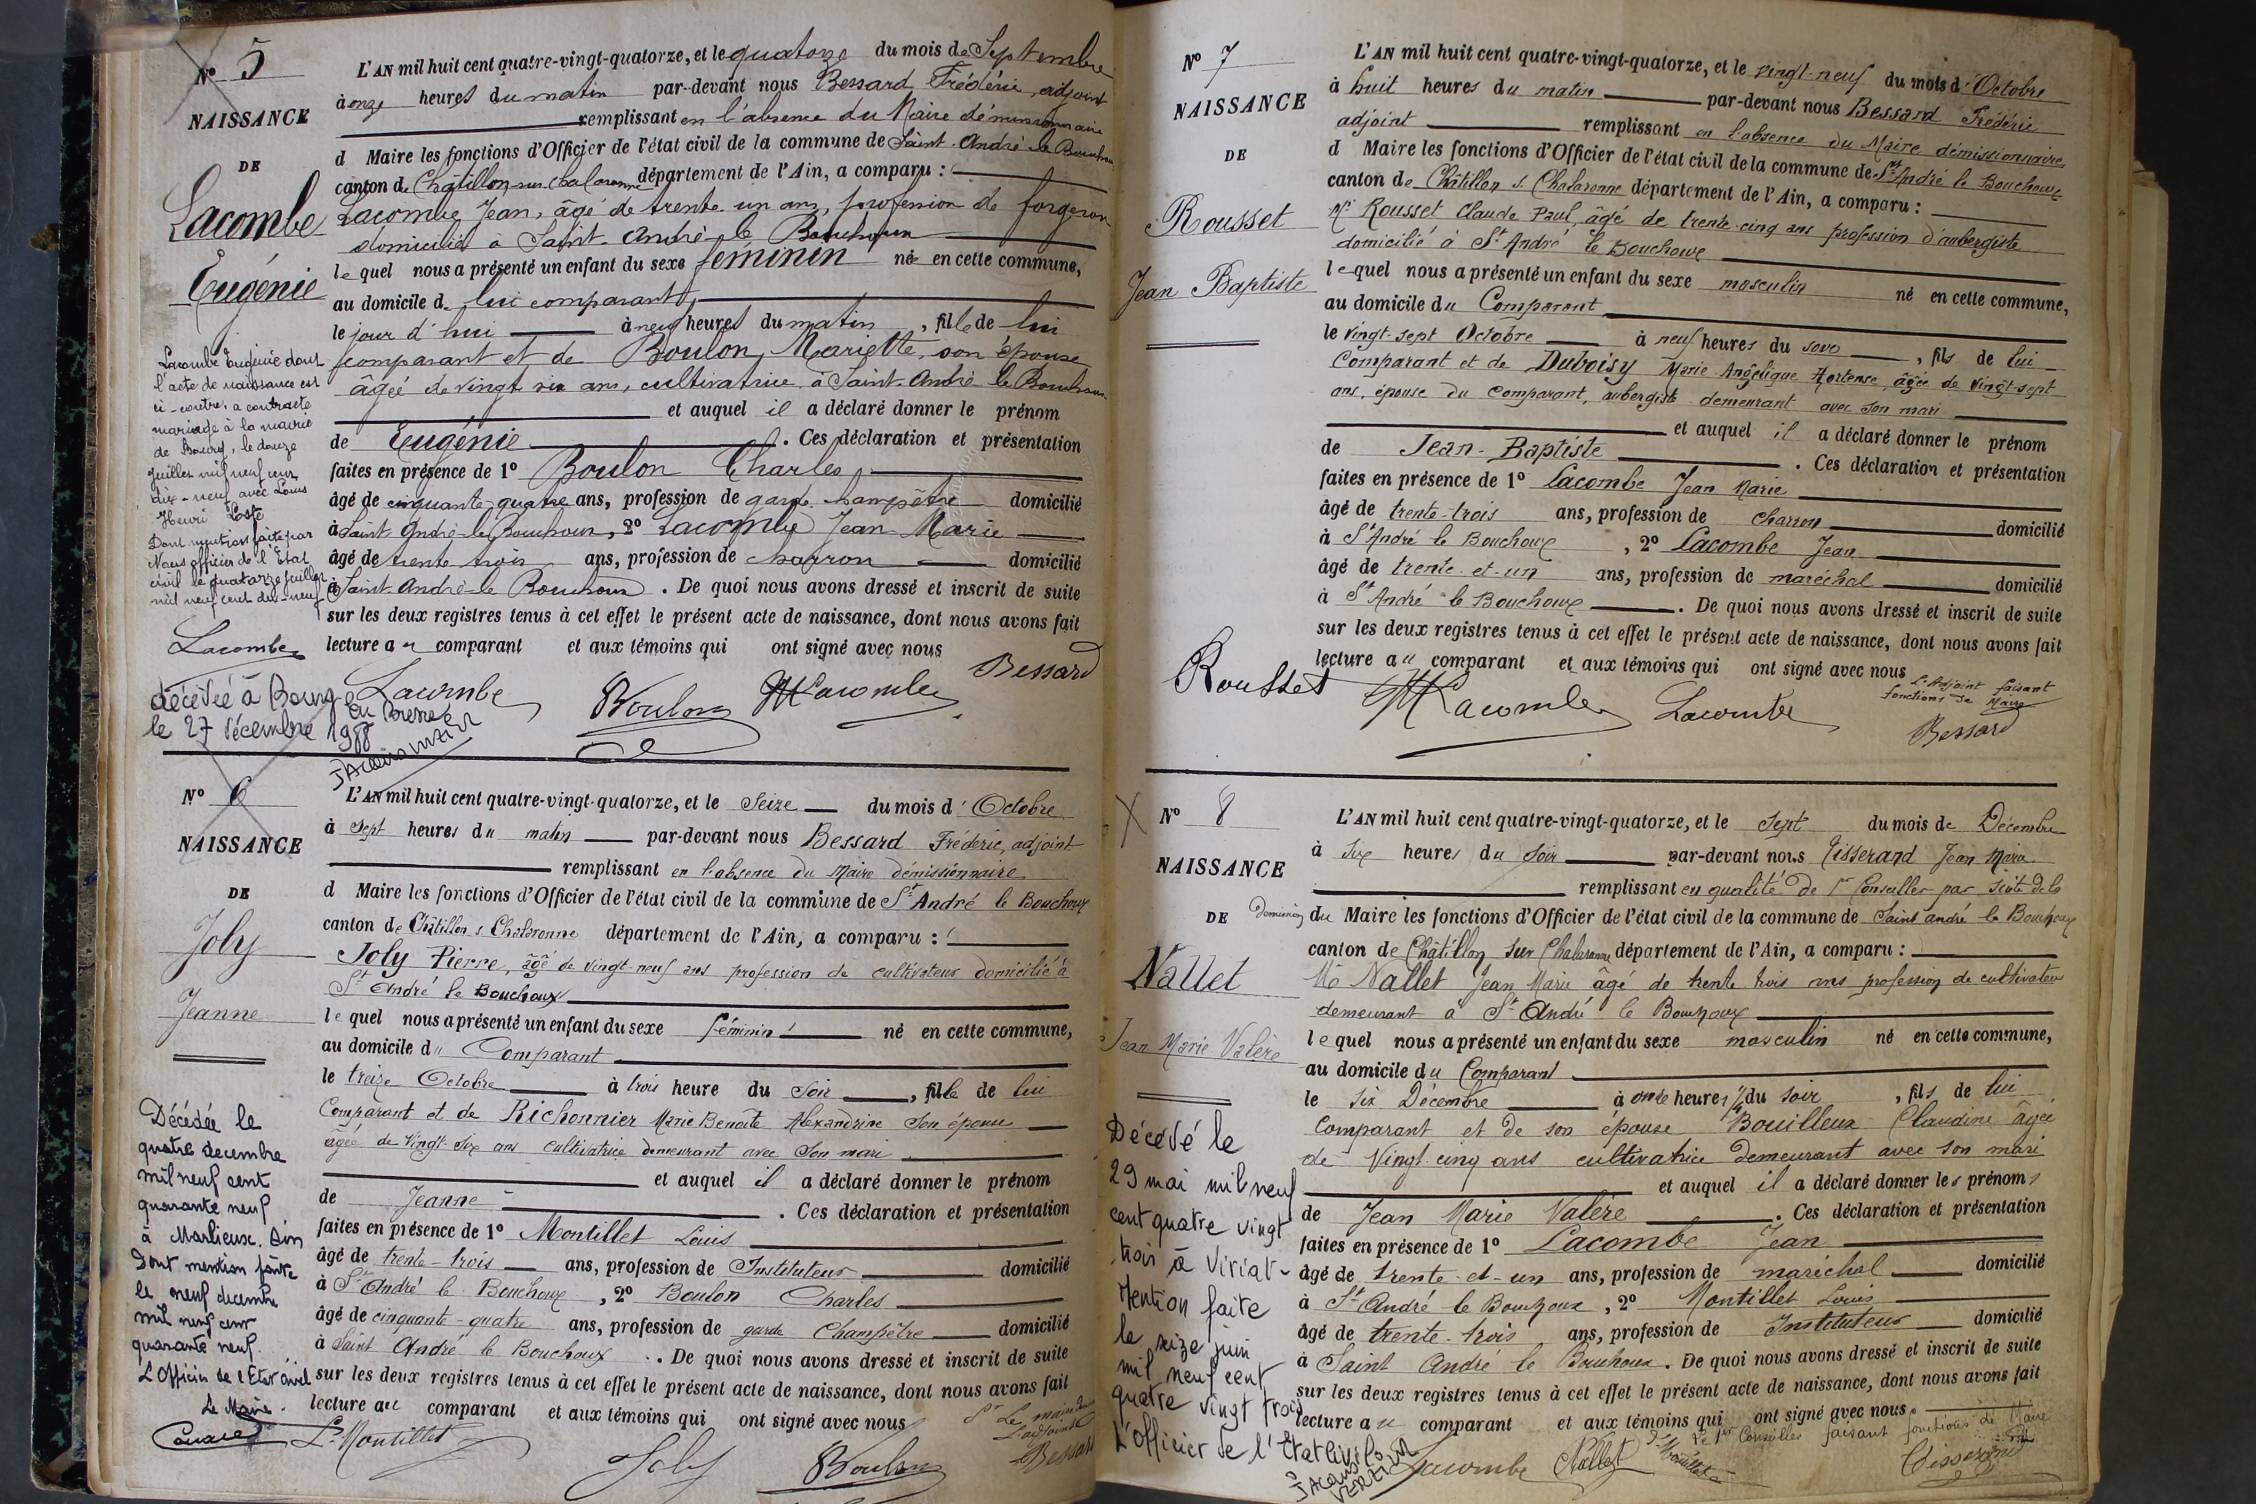 N° 5
NAISSANCE
DE
Lacombe
Eugénie
L'AN mil huit cent quatre-vingt-quatorze, et le quatorze du mois de Septembre
à onze heures du matin par-devant nous Bessard Frédéric, adjoint
remplissant en l'absence du Maire démissionnaire
d Maire les fonctions d'Officier de l'état civil de la commune de Saint-André-le-Bouchoux
canton de Châtillon-sur-Chalaronne département de l'Ain, a comparu :
Lacombe Jean, âgé de trente-un ans, profession de forgeron
domicilié à Saint-André-le-Bouchoux
lequel nous a présenté un enfant du sexe féminin né en cette commune,
au domicile de lui comparant,
le jour d'hui à neuf heures du matin, fille de lui
comparant et de Boulon, Mariette, son épouse
âgée de vingt six ans, cultivatrice à Saint-André-le-Bouchoux
et auquel il a déclaré donner le prénom
de Eugénie. Ces déclaration et présentation
faites en présence de 1° Boulon Charles,
âgé de cinquante-quatre ans, profession de garde champêtre domicilié
à Saint-André-le-Bouchoux, 2° Lacombe Jean Marie
âgé de trente trois ans, profession de charron domicilié
à Saint-André-le-Bouchoux. De quoi nous avons dressé et inscrit de suite
sur les deux registres tenus à cet effet le présent acte de naissance, dont nous avons fait
lecture au comparant et aux témoins qui ont signé avec nous
Bessard
Lacombe Boulon JM Lacombe
Lacombe Eugénie dont
l'acte de naissance est
ci-contre, a contracté
mariage à la mairie
de Bourg, le douze
juillet mil neuf cent
dix-neuf avec Louis
Henri
Dont mention faite par
Nous officier de l'Etat
civil le quatorze juillet
mil neuf cent dix-neuf
Lacombe
décédée à Bourg
en Bresse
le 27 décembre 1988
N° 6
NAISSANCE
DE
Joly
Jeanne
L'AN mil huit cent quatre-vingt-quatorze, et le Seize du mois d'Octobre
à sept heures du matin par-devant nous Bessard Frédéric, adjoint
remplissant en l'absence du Maire démissionnaire
d Maire les fonctions d'Officier de l'état civil de la commune de St André le Bouchoux
canton de Châtillon s Chalaronne département de l'Ain, a comparu :
Joly Pierre, âgé de vingt-neuf ans profession de cultivateur domicilié à
St André le Bouchoux
lequel nous a présenté un enfant du sexe féminin né en cette commune,
au domicile du Comparant
le treize Octobre à trois heure du soir, fille de lui
Comparant et de Richonnier Marie Benoîte Alexandrine Son épouse
âgée de vingt-six ans cultivatrice demeurant avec Son mari
et auquel il a déclaré donner le prénom
de Jeanne. Ces déclaration et présentation
faites en présence de 1° Montillet Louis
âgé de trente-trois ans, profession de Instituteur domicilié
à St André le Bouchoux, 2° Boulon Charles
âgé de cinquante-quatre ans, profession de garde Champêtre domicilié
à Saint André le Bouchoux. De quoi nous avons dressé et inscrit de suite
sur les deux registres tenus à cet effet le présent acte de naissance, dont nous avons fait
lecture au comparant et aux témoins qui ont signé avec nous
L. Montillet Joly Boulon Bessard
Décédée le
quatre decembre
mil neuf cent
quarante neuf
à Marlieux. Ain
Dont mention faite
le neuf decembre
mil neuf cent
quarante neuf.
L'Officier de l'Etat civil
Le Maire.
N° 7
NAISSANCE
DE
Rousset
Jean Baptiste
L'AN mil huit cent quatre-vingt-quatorze, et le vingt-neuf du mois d'Octobre
à huit heures du matin par-devant nous Bessard Frédéric
adjoint remplissant en l'absence du Maire démissionnaire
d Maire les fonctions d'Officier de l'état civil de la commune de St André le Bouchoux
canton de Châtillon s. Chalaronne département de l'Ain, a comparu :
Mr Rousset Claude Paul, âgé de trente-cinq ans profession d'aubergiste
domicilié à St André le Bouchoux
lequel nous a présenté un enfant du sexe masculin né en cette commune,
au domicile du Comparant
le vingt-sept Octobre à neuf heures du soir, fils de lui
Comparant et de Duboisy Marie Angélique Hortense, âgée de vingt-sept
ans, épouse du Comparant, aubergiste demeurant avec son mari
et auquel il a déclaré donner le prénom
de Jean-Baptiste. Ces déclaration et présentation
faites en présence de 1° Lacombe Jean Marie
âgé de trente-trois ans, profession de charron domicilié
à St André le Bouchoux, 2° Lacombe Jean
âgé de trente-et-un ans, profession de maréchal domicilié
à St André le Bouchoux. De quoi nous avons dressé et inscrit de suite
sur les deux registres tenus à cet effet le présent acte de naissance, dont nous avons fait
lecture au comparant et aux témoins qui ont signé avec nous
L'Adjoint faisant
fonctions de Maire
Rousset JM Lacombe Lacombe Bessard
N° 8
NAISSANCE
DE
Nallet
Jean Marie Valère
L'AN mil huit cent quatre-vingt-quatorze, et le sept du mois de Décembre
à six heures du soir par-devant nous Tisserand Jean Marie
remplissant en qualité de 1er Conseiller par suite de la
démission du Maire les fonctions d'Officier de l'état civil de la commune de Saint André le Bouchoux
canton de Châtillon sur Chalaronne département de l'Ain, a comparu :
Mr Nallet Jean Marie âgé de trente trois ans profession de cultivateur
demeurant à St André le Bouchoux
lequel nous a présenté un enfant du sexe masculin né en cette commune,
au domicile du Comparant
le six Décembre à onze heures ¼ du soir, fils de lui
Comparant et de son épouse Bouilleux Claudine âgée
de Vingt-cinq ans cultivatrice demeurant avec son mari
et auquel il a déclaré donner les prénoms
de Jean Marie Valère. Ces déclaration et présentation
faites en présence de 1° Lacombe Jean
âgé de trente-et-un ans, profession de maréchal domicilié
à St André le Bouchoux, 2° Montillet Louis
âgé de trente-trois ans, profession de Instituteur domicilié
à Saint André le Bouchoux. De quoi nous avons dressé et inscrit de suite
sur les deux registres tenus à cet effet le présent acte de naissance, dont nous avons fait
lecture au comparant et aux témoins qui ont signé avec nous.
Le 1er Conseiller faisant fonctions de Maire
Lacombe Nallet L. Montillet Tisserand
Décédé le
29 mai mil neuf
cent quatre vingt
trois à Viriat-
Mention faite
le seize juin
mil neuf cent
quatre vingt trois
L'Officier de l'Etat Civil